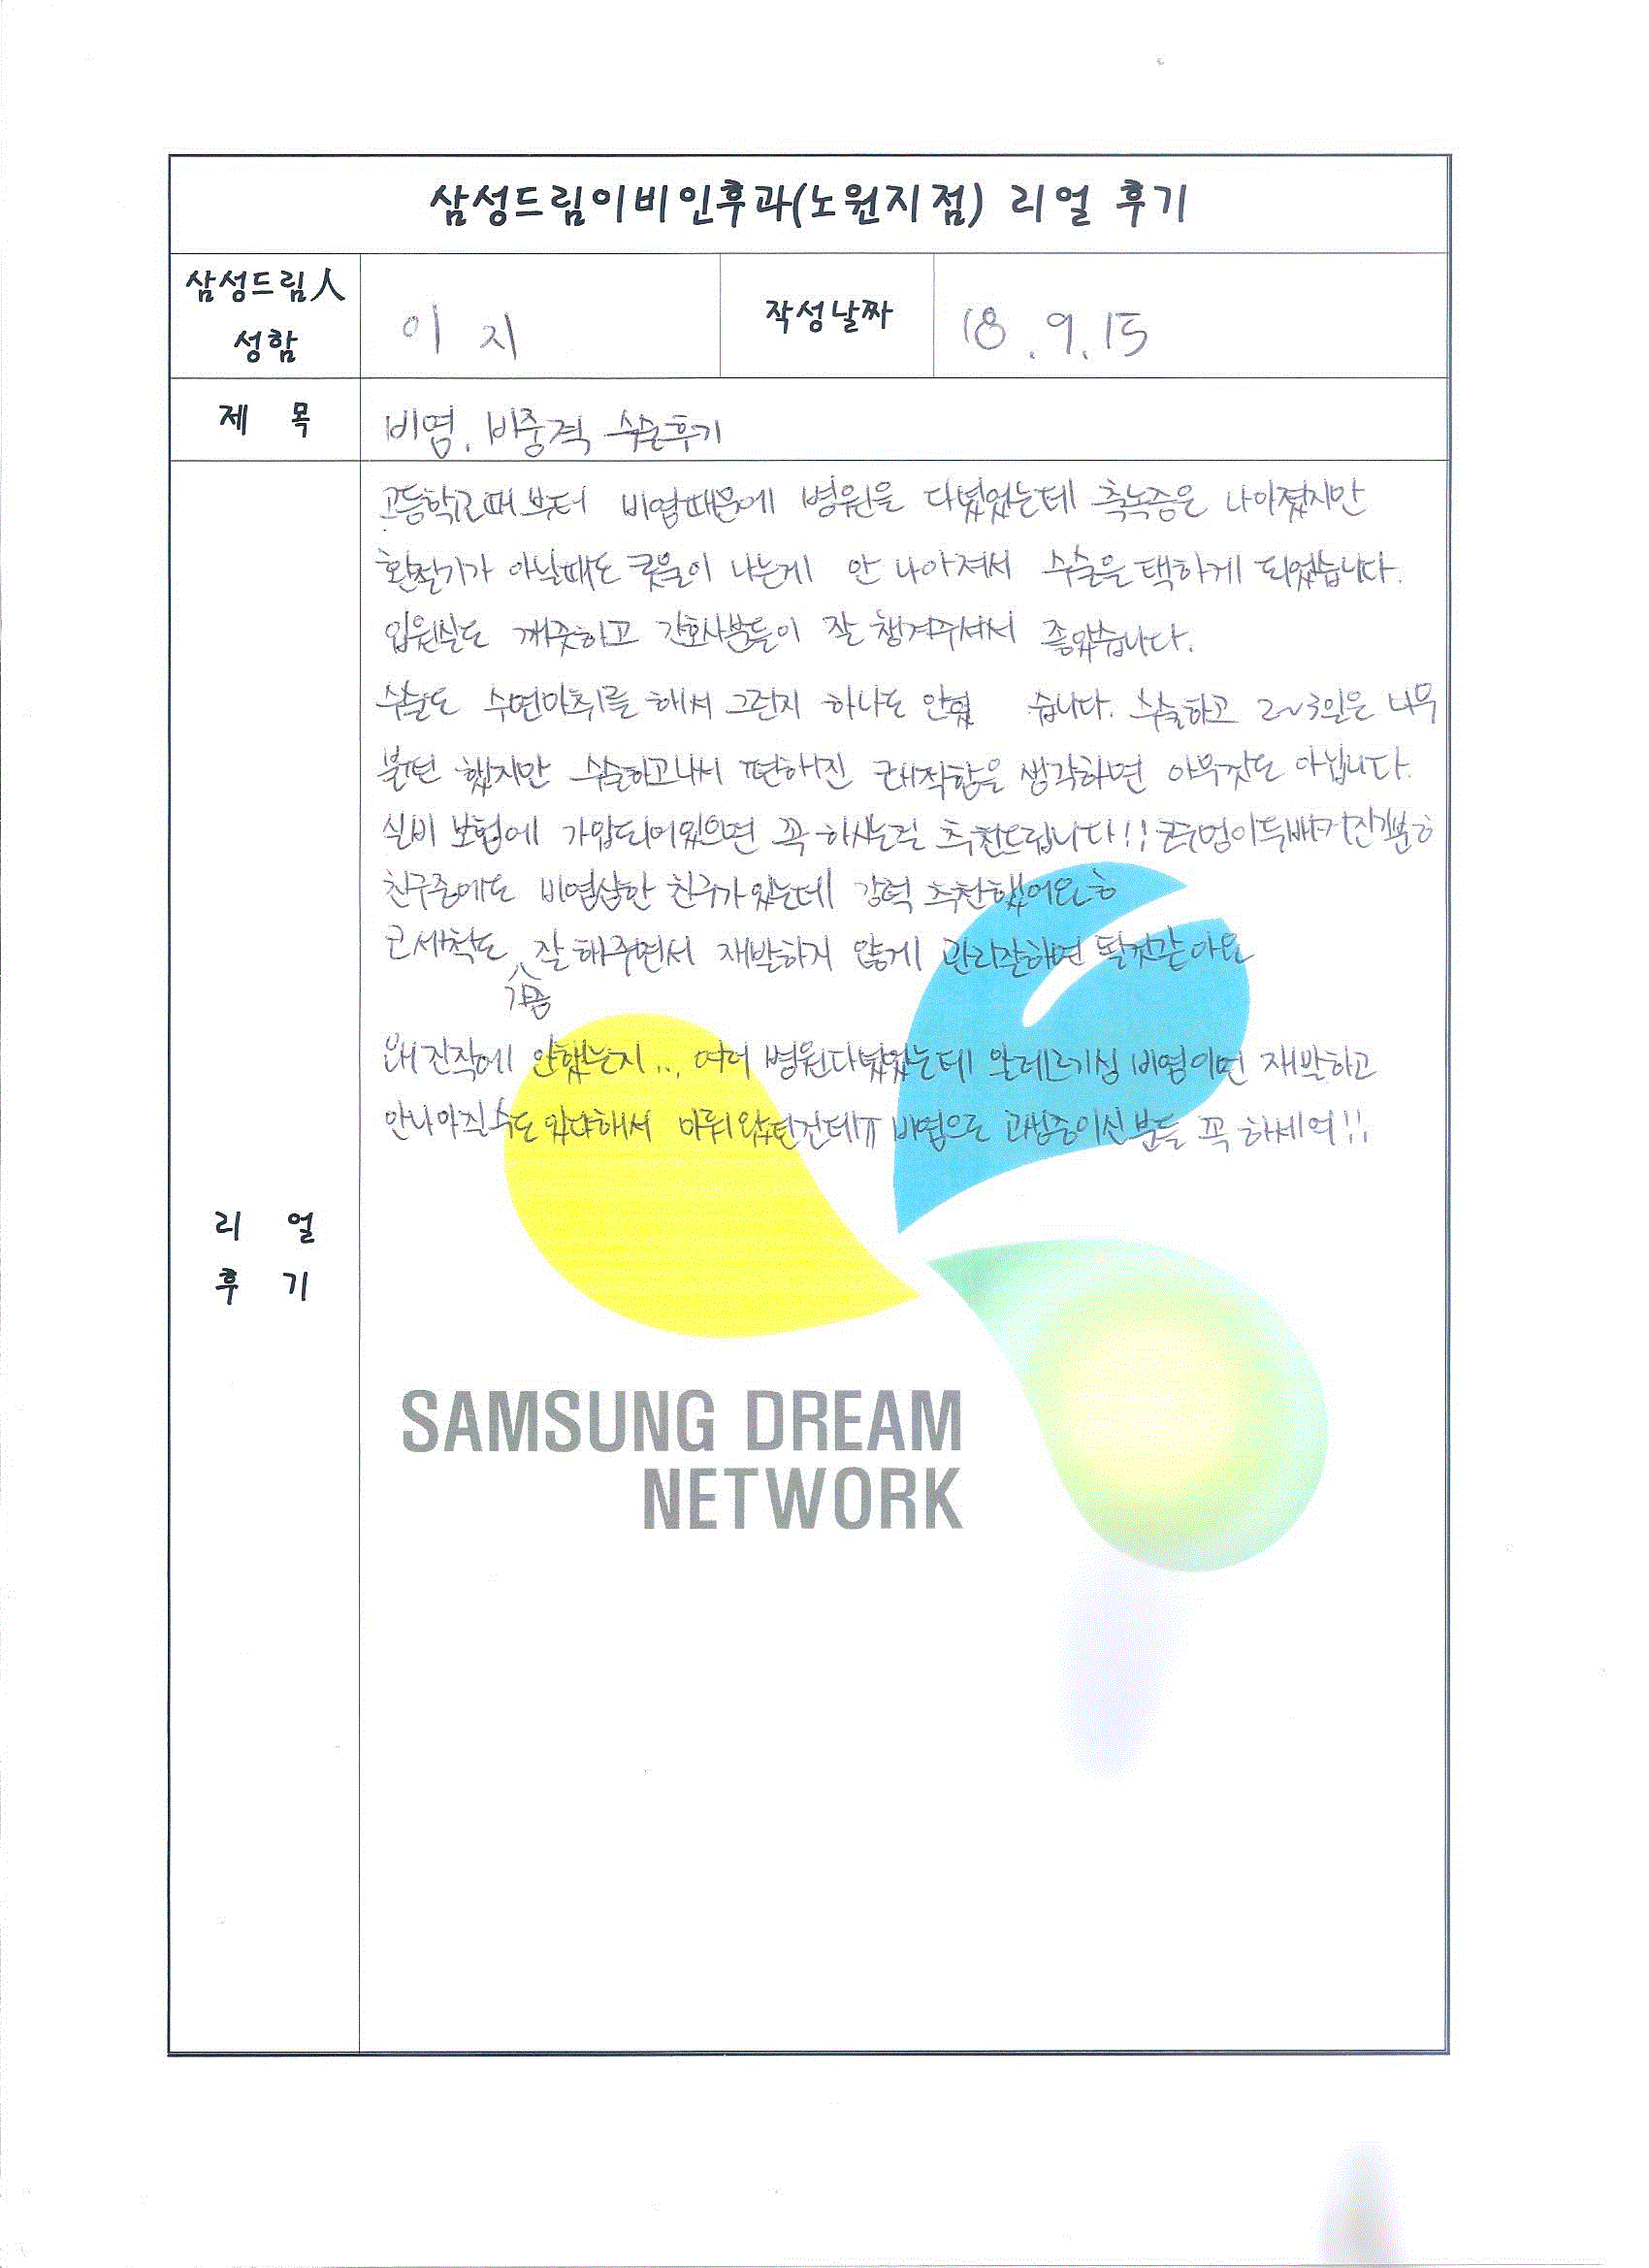 삼성드림이비인후과(노원지점) 리얼 후기
삼성드림人
성함
이 지
작성날짜
18.9.15
제 목
비염, 비중격 수술후기
고등학교때부터 비염때문에 병원을 다녔었는데 축농증은 나아졌지만
환절기가 아닐때도 콧물이 나는게 안 나아져서 수술을 택하게 되었습니다.
입원실도 깨끗하고 간호사분들이 잘 챙겨주셔서 좋았습니다.
수술도 수면마취를 해서 그런지 하나도 습니다. 수술하고 2~3일은 너무
불편 했지만 수술하고나서 편해진 쾌적함을 생각하면 아무것도 아닙니다.
실비 보험에 가입되어있으면 꼭 하시는걸 추천드립니다!! 콧구멍이두배커진기분ㅎ
친구중에도 비염심한 친구가 있는데 강력 추천했어요ㅎ
코세척도 잘 해주면서 재발하지 않게 관리잘하면 될것같아요
가끔
왜 진작에 안했는지... 여러 병원다녔었는데 알레르기성 비염이면 재발하고
안나아질수도 있다해서 미뤄왔던건데ㅠ 비염으로 고생중이신분들 꼭 하세여!!
리 얼
후 기
SAMSUNG DREAM
NETWORK